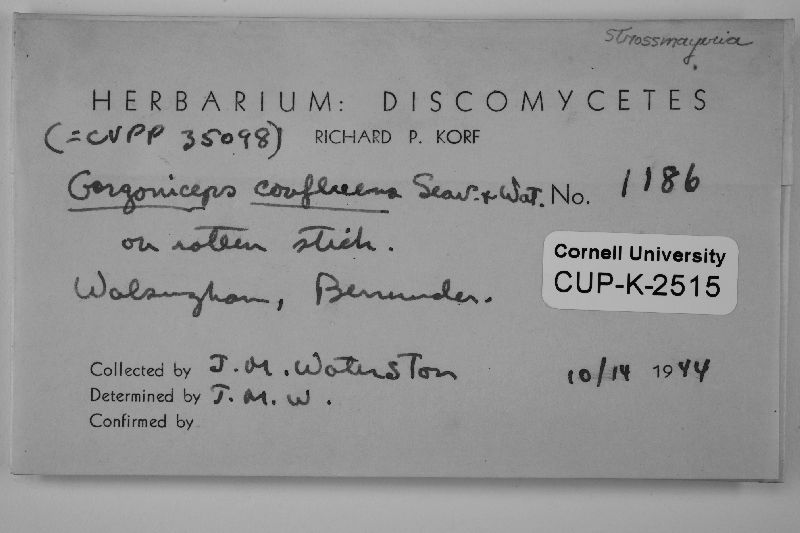 Strossmayeria
HERBARIUM: DISCOMYCETES
(=CUPP 35098) RICHARD P. KORF
Gorgoniceps confluens Seav. & Wat. No. 1186
on rotten stick.
Walsingham, Bermuda.
Cornell University
CUP-K-2515
Collected by J. M. Waterston 10/14 1944
Determined by J. M. W.
Confirmed by